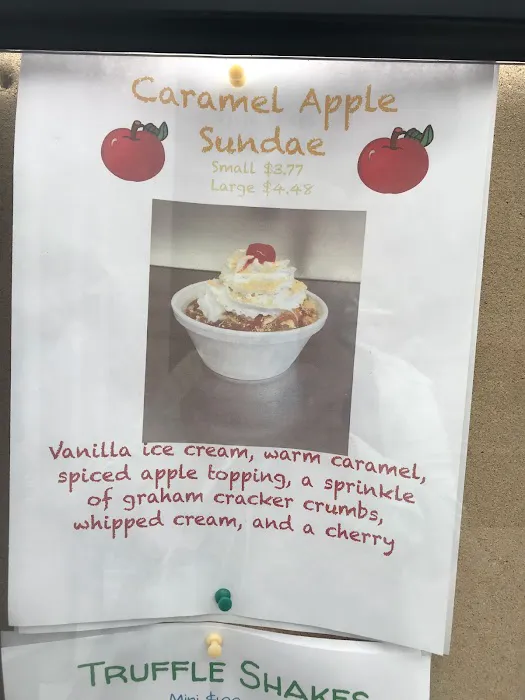 Caramel Apple
Sundae
Small $3.77
Large $4.48
Vanilla ice cream, warm caramel,
spiced apple topping, a sprinkle
of graham cracker crumbs,
whipped cream, and a cherry
TRUFFLE SHAKES
Mini